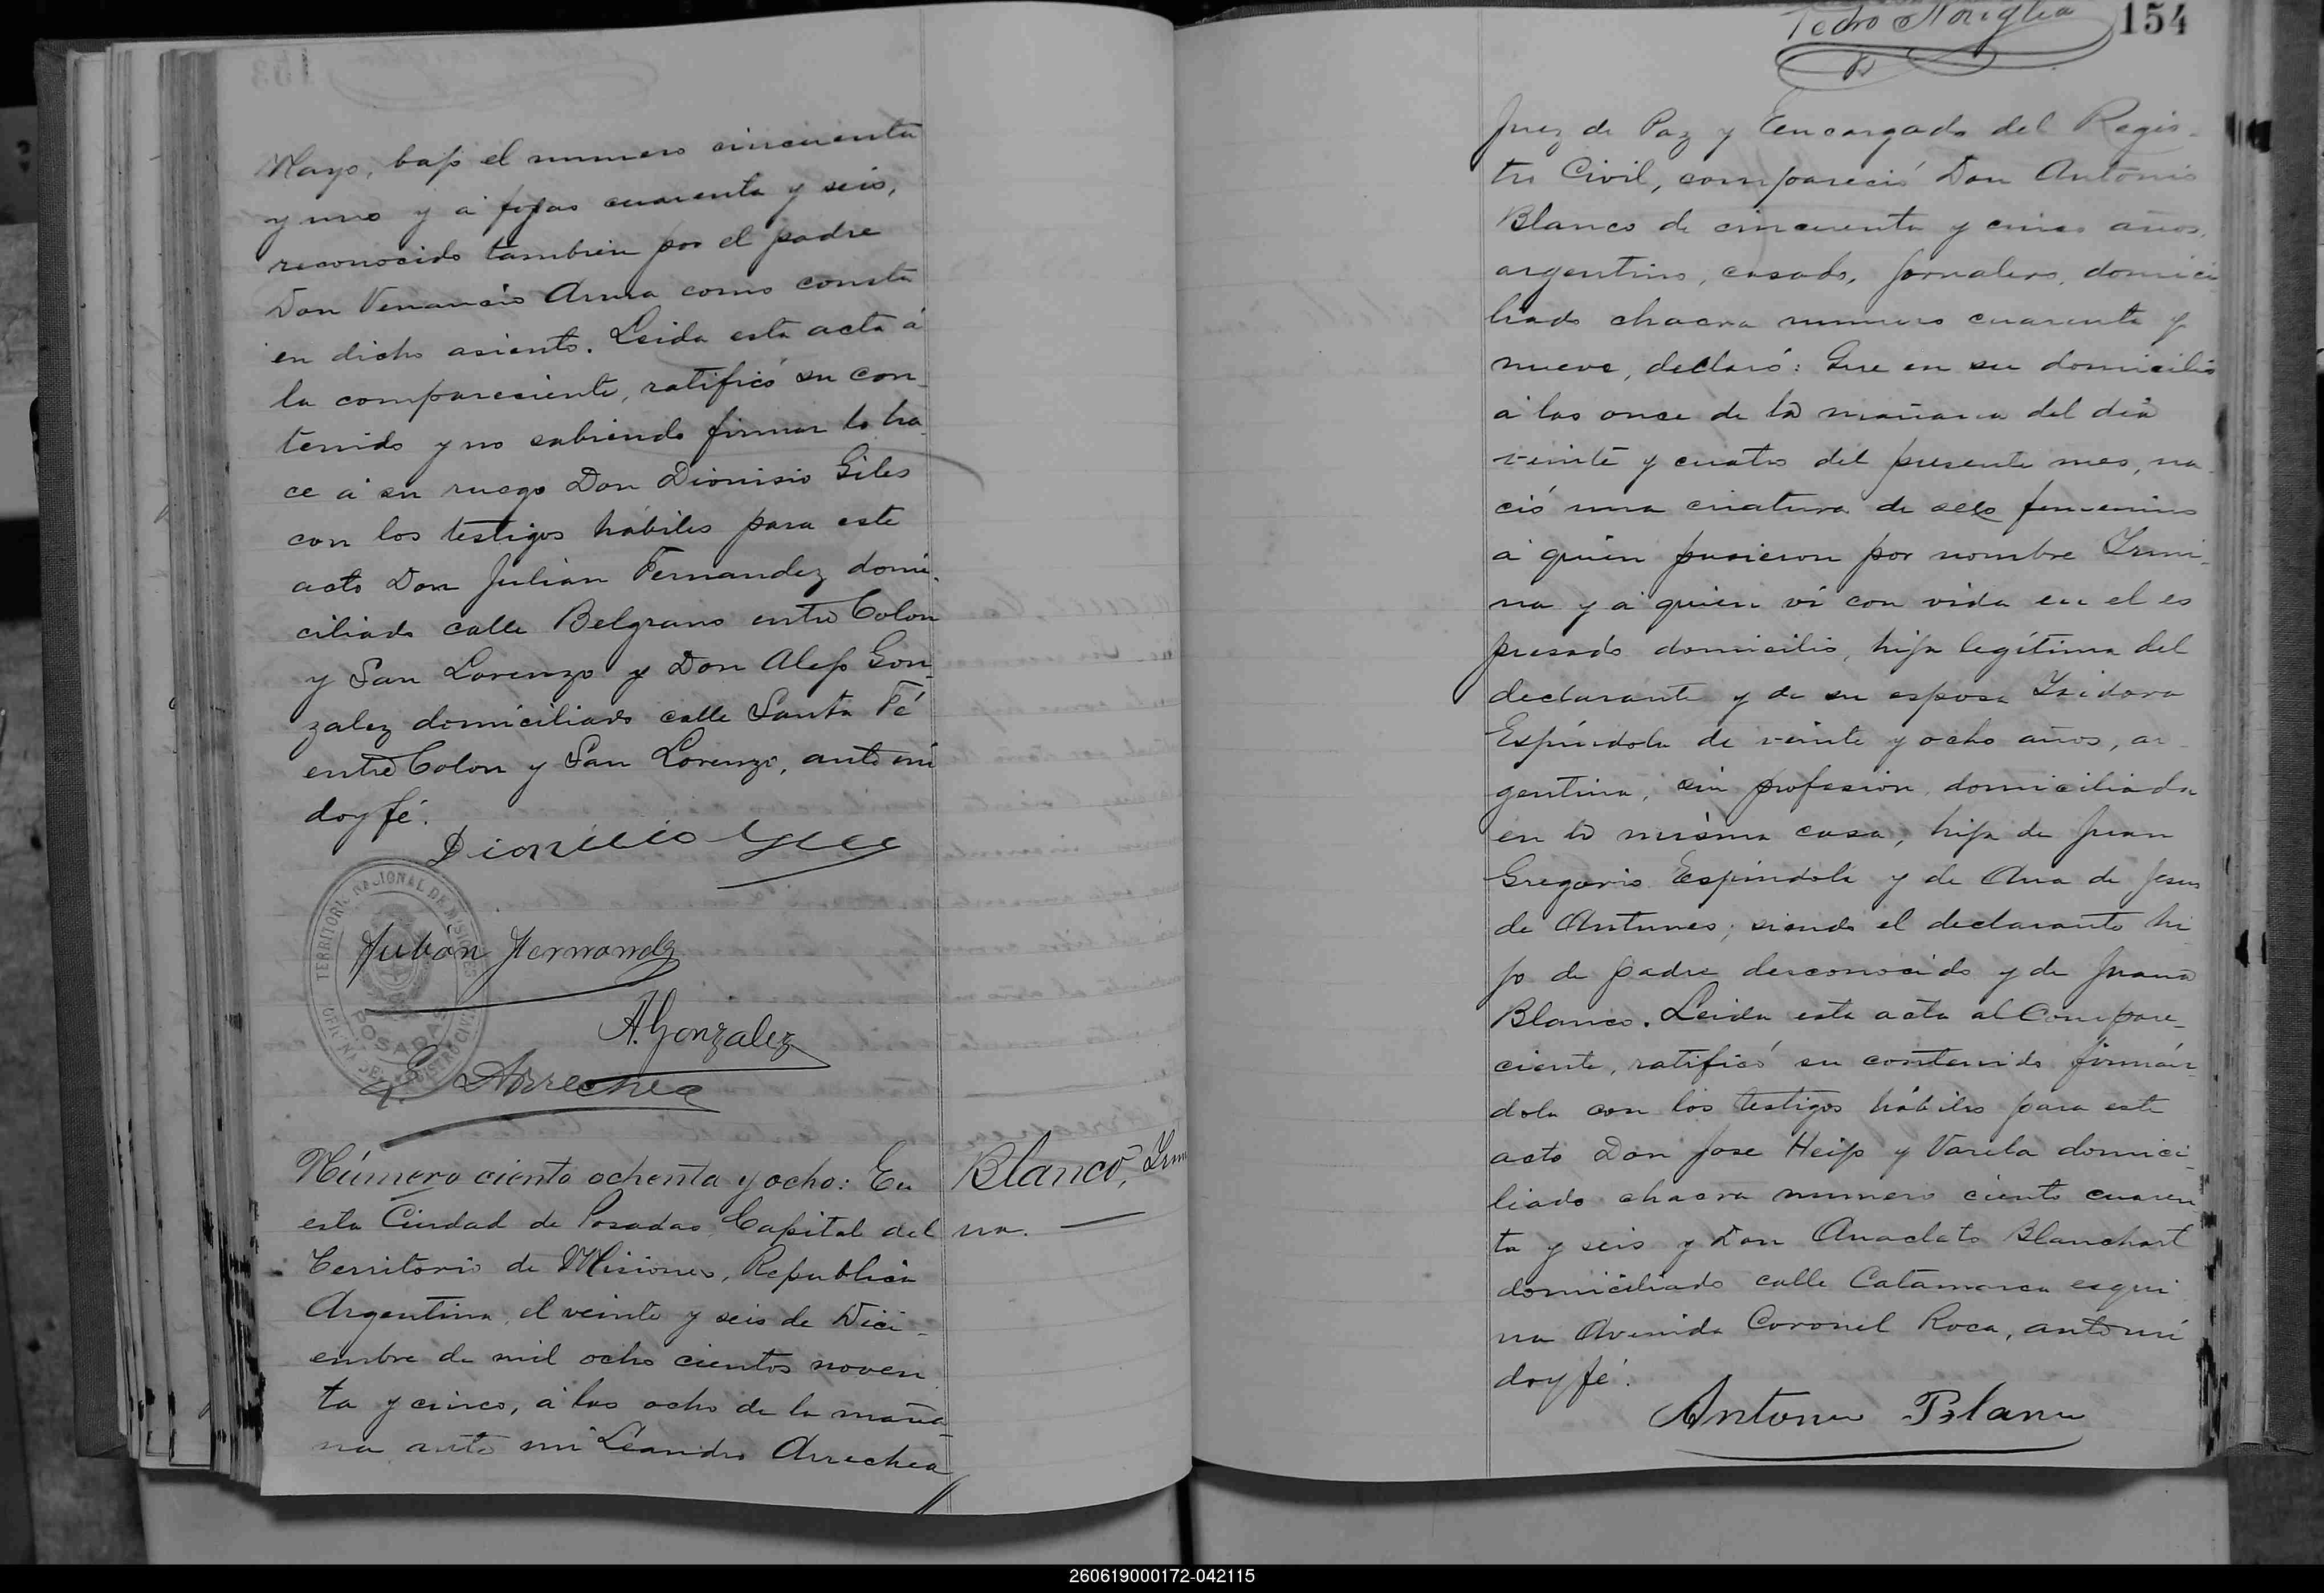 Mayo, bajo el numero cincuenta
y uno y á fojas cuarenta y seis,
reconocido tambien por el padre
Don Venancio como consta
en dicho asiento. Leida esta acta á
la compareciente, ratificó su con-
tenido y no sabiendo firmar lo ha-
ce á su ruego Don Dionisio Giles
con los testigos hábiles para este
acto Don Julian Fernandez domi-
ciliado calle Belgrano entre Colon
y San Lorenzo y Don Alejo Gon-
zalez domiciliado calle Santa Fé
entre Colon y San Lorenzo, ante mi
doy fé.
Dionicio
TERRITORIO NACIONAL DE MISIONES
OFICINA DEL REGISTRO CIVIL
POSADAS
Julián Fernandz
A. Gonzalez
L. Arrechea
Número ciento ochenta y ocho: En
esta Ciudad de Posadas Capital del
Territorio de Misiones, Republica
Argentina, el veinte y seis de Dici-
embre de mil ocho cientos noven
ta y cinco, á las ocho de la maña-
na ante mi Leandro Arrechea
Blanco, Irmi
na. —
Pedro Noriglia
154
Juez de Paz y Encargado del Regis-
tro Civil, compareció Don Antonio
Blanco de cincuenta y cinco años,
argentino, casado, jornalero, domici
liado chacra numero cuarenta y
nueve, declaró: Que en su domicilio
á las once de la mañana del dia
veinte y cuatro del presente mes, na-
ció una criatura de sexo femenino
á quien pusieron por nombre Irmi-
na y á quien vi con vida en el es
presado domicilio, hija legítima del
declarante y de su esposa Isidora
Espíndola de veinte y ocho años, ar-
gentina, sin profesion, domiciliada
en la misma casa, hija de Juan
Gregorio Espindola y de Ana de Jesus
de Antunes; siendo el declarante hi
jo de padre desconocido y de Juana
Blanco. Leida esta acta al Compare-
ciente, ratificó su contenido firmán-
dola con los testigos hábiles para este
acto Don Jose Heijo y Varela domici-
liado chacra numero ciento cuaren
ta y seis y Don Anacleto Blanchart
domiciliado calle Catamarca esqui
na Avenida Coronel Roca, ante mi
doy fé.
Antonio Blanco
260619000172-042115